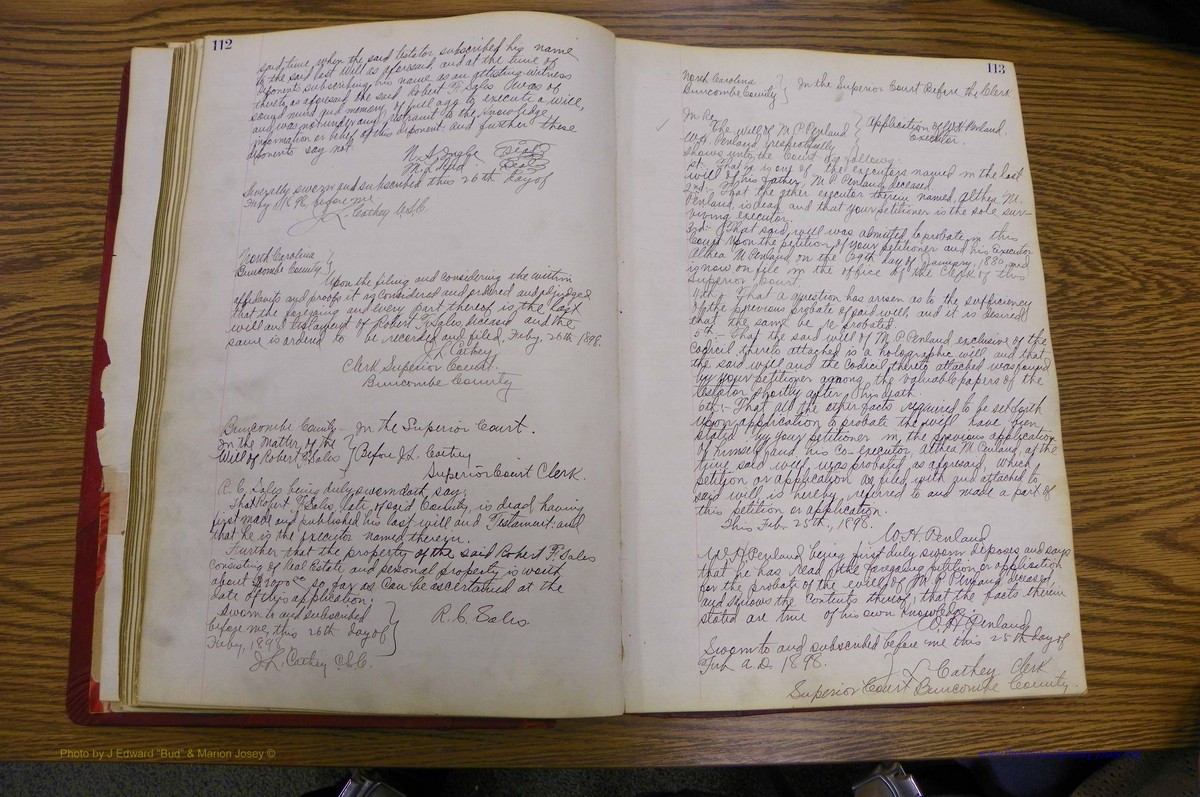 112
said time, when the said testator subscribed his name
to the said last will as aforesaid, and at the time of
deponents subscribing his name as an attesting witness
thereto, as aforesaid, the said Robert F. Sales was of
sound mind and memory, of full age to execute a will,
and was not under any restraint to the knowledge
information or belief of this deponent and further these
deponents say not.
N. S. (Seal)
M. L. Reed (Seal)
Severally sworn and subscribed this 26th day of
Feby 1898 before me
J L. Cathey C.S.C.
North Carolina
Buncombe County
Upon the filing and considering the within
affidavits and proofs it is considered and ordered and adjudged
that the foregoing and every part thereof is the last
will and testament of Robert F. Sales, deceased and the
same is to be recorded and filed, Feby. 26th 1898.
J. L. Cathey
Clerk Superior Court.
Buncombe County
Buncombe County - In the Superior Court.
In the Matter of the
Will of Robert F. Sales } Before J. L. Cathey
Superior Court Clerk.
R. C. Sales being duly sworn doth say;
That Robert F. Sales, late of said County, is dead, having
first made and published his last will and Testament: and
that he is the executor named therein.
Further that the property of the said Robert F. Sales
consisting of Real Estate and personal property is worth
about so far as can be ascertained at the
date of this application;
Sworn to and subscribed
before me, this 26th day of
Feby, 1898
R. C. Sales
J. L. Cathey C.S.C.
113
North Carolina
Buncombe County } In the Superior Court Before the Clerk
In Re
The will of M. P. Penland } Application of W. H. Penland,
Executor.
W. H. Penland, respectfully
shows unto the Court as follows:
1st. That he is one of the executors named in the last
will of his father, M. P. Penland, deceased.
2nd:- That the other executor therein named, Althea M.
Penland, is dead and that your petitioner is the sole sur-
viving executor.
3rd:- That said will was admitted to probate in this
Court upon the petition of your petitioner and his Executor
Althea M. Penland on the 29th day of January, 1890, and
is now on file in the office of the Clerk of this
Superior Court.
4th:- That a question has arisen as to the sufficiency
of the previous probate of said will, and it is desired
that the same be re-probated.
5th:- That the said will of M. P. Penland exclusive of the
Codicil thereto attached is a holographic will and that
the said will and the codicil thereto attached was found
by your petitioner among the valuable papers of the
testator shortly after his death.
6th:- That all the other facts required to be set forth
upon application to probate the will have been
stated by your petitioner in the previous application
of himself and his co-executor, Althea M. Penland, at the
time said will was probated, as aforesaid, which
petition or application as filed with and attached to
said will is hereby referred to and made a part of
this petition or application.
This Feb. 25th, 1898.
W. H. Penland
W. H. Penland being first duly sworn deposes and says
that he has read the foregoing petition or application
for the probate of the will of M. P. Penland deceased,
and knows the contents thereof, that the facts therein
stated are true of his own knowledge.
W. H. Penland
Sworn to and subscribed before me this 25th day of
Feb A.D. 1898.
J L Cathey Clerk
Superior Court Buncombe County.
Photo by J Edward "Bud" & Marion Josey ©